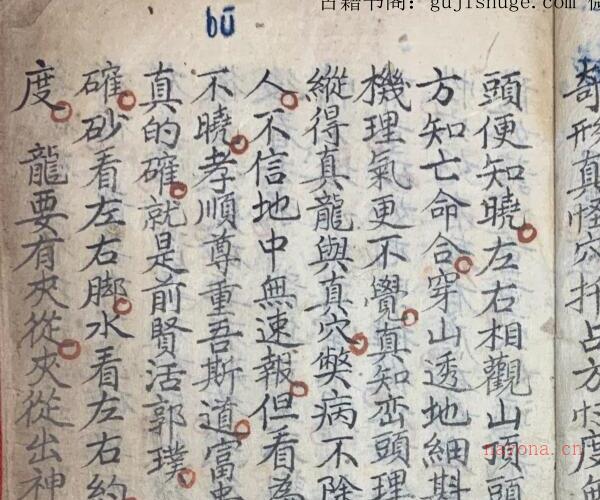 古籍书阁：gujishuge.com
bū
奇形真怪穴扦占方寸度無
頭便知曉左右相觀山頂頭
方知亡命合穿山透地細斟
機理氣更不覺真知巒頭理
縱得真龍與真穴弊病不除
人不信地中無速報但看為
不曉孝順尊重吾斯道富貴
真的確就是前賢活郭璞
確砂看左右脚水看左右約
度龍要有夾從夾從出神
nayona.cn